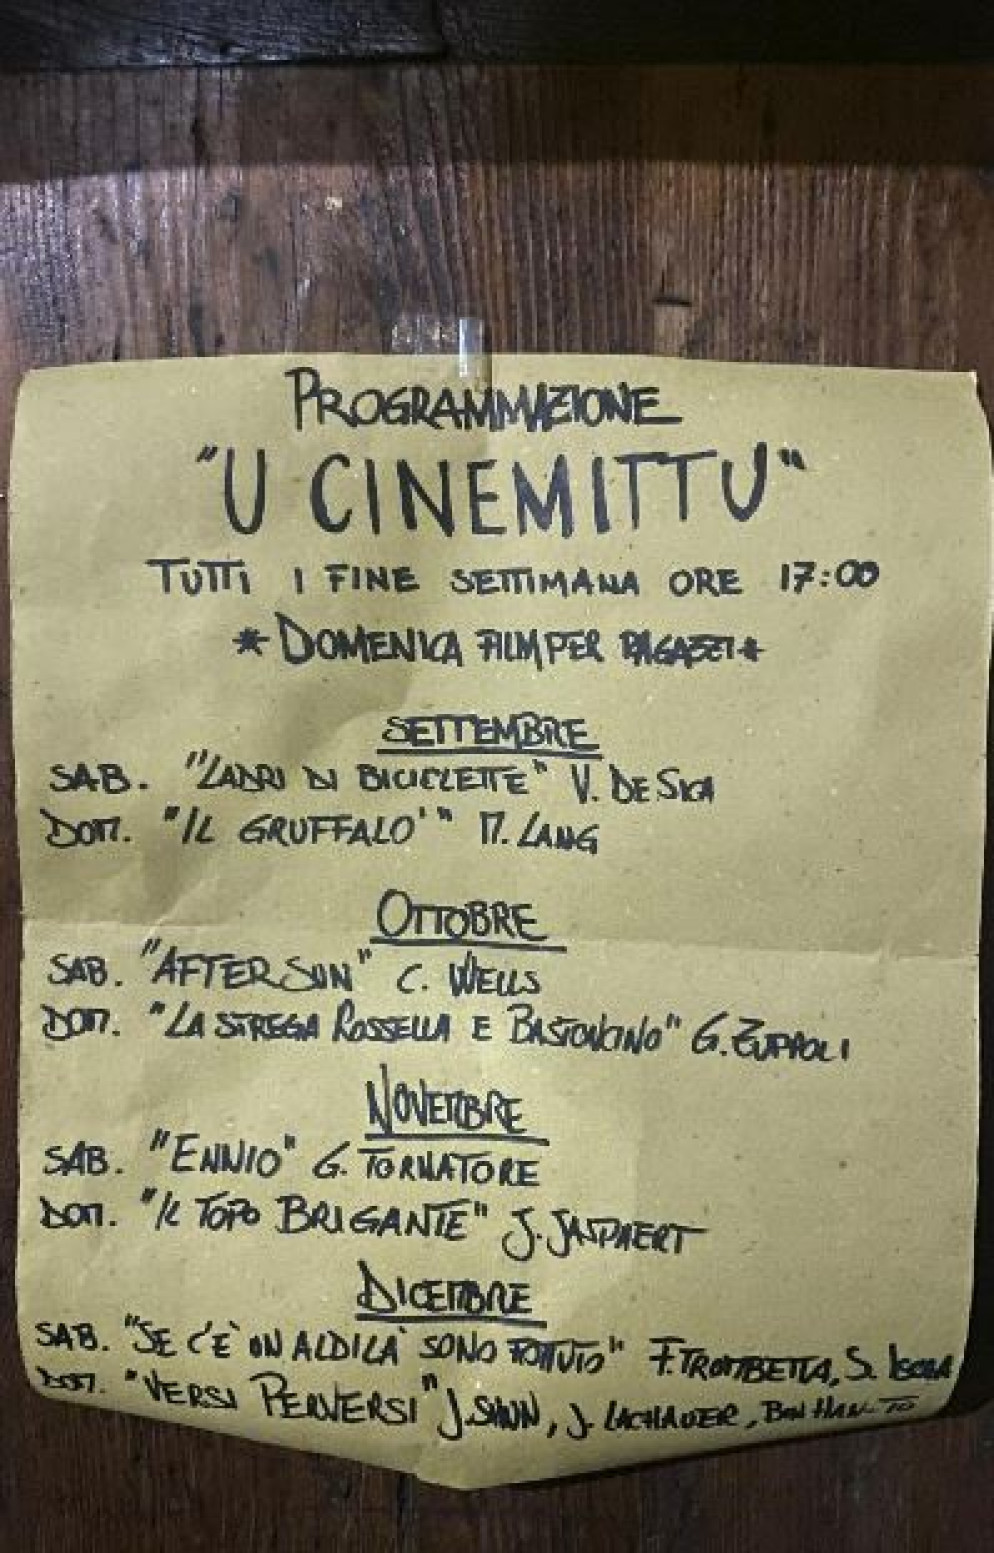 PROGRAMMAZIONE
"U CINEMITTU"
TUTTI I FINE SETTIMANA ORE 17:00
*DOMENICA FILM PER RAGAZZI*
SETTEMBRE
SAB. "LADRI DI BICICLETTE" V. DE SICA
DOM. "IL GRUFFALO'" M. LANG
OTTOBRE
SAB. "AFTERSUN" C. WELLS
DOM. "LA STREGA ROSSELLA E BASTONCINO" G. ZUPPOLI
NOVEMBRE
SAB. "ENNIO" G. TORNATORE
DOM. "IL TOPO BRIGANTE" J. JASPAERT
DICEMBRE
SAB. "SE C'È UN ALDILÀ SONO FOTTUTO" F. TROMBETTA, S. ISOLA
DOM. "VERSI PERVERSI" J. LACHAUER,